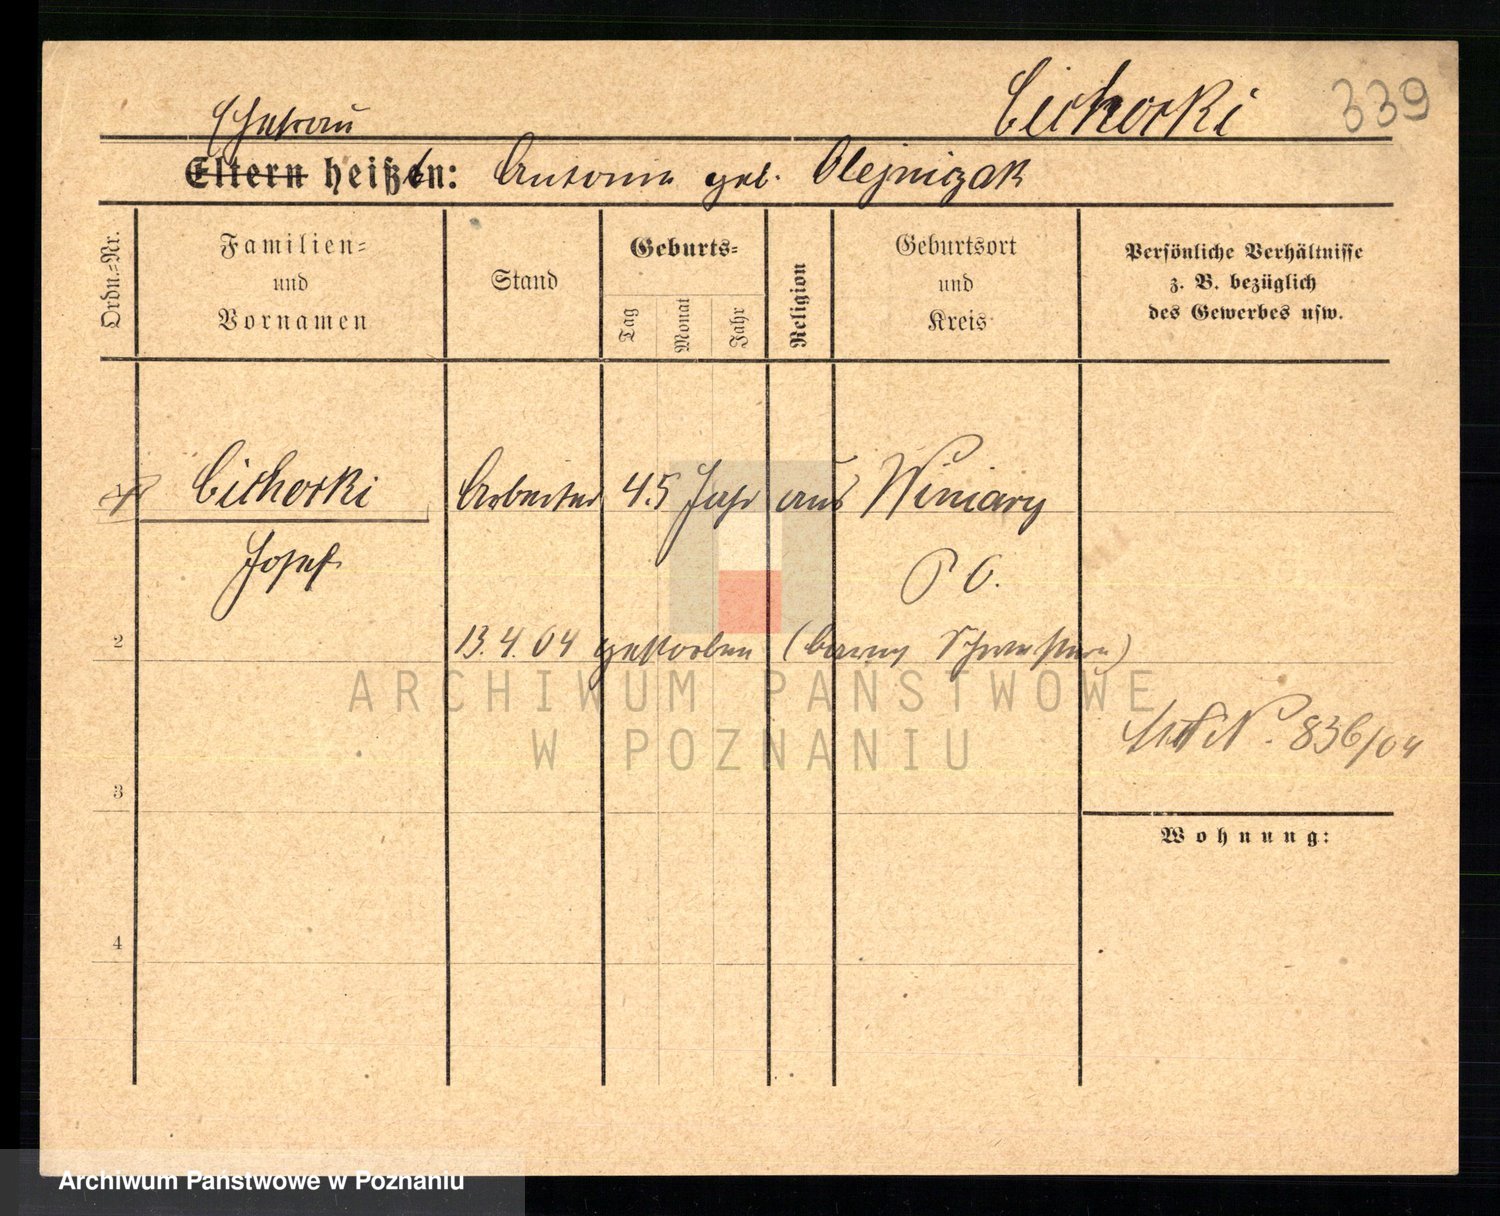 Cichorki 339
Ehefrau
Eltern heißt: Antonie geb. Olejniczak
Ordn.=Nr.
Familien=
und
Vornamen
Stand
Geburts=
Tag
Monat
Jahr
Religion
Geburtsort
und
Kreis
Persönliche Verhältnisse
z. B. bezüglich
des Gewerbes usw.
Cichorki Arbeiter 45 Jahr aus Winiary
Josef P. O.
2
13.4.04 gestorben (barmh Schwestern)
ARCHIWUM PAŃSTWOWE
W POZNANIU
N. 836/04
3
Wohnung:
4
Archiwum Państwowe w Poznaniu